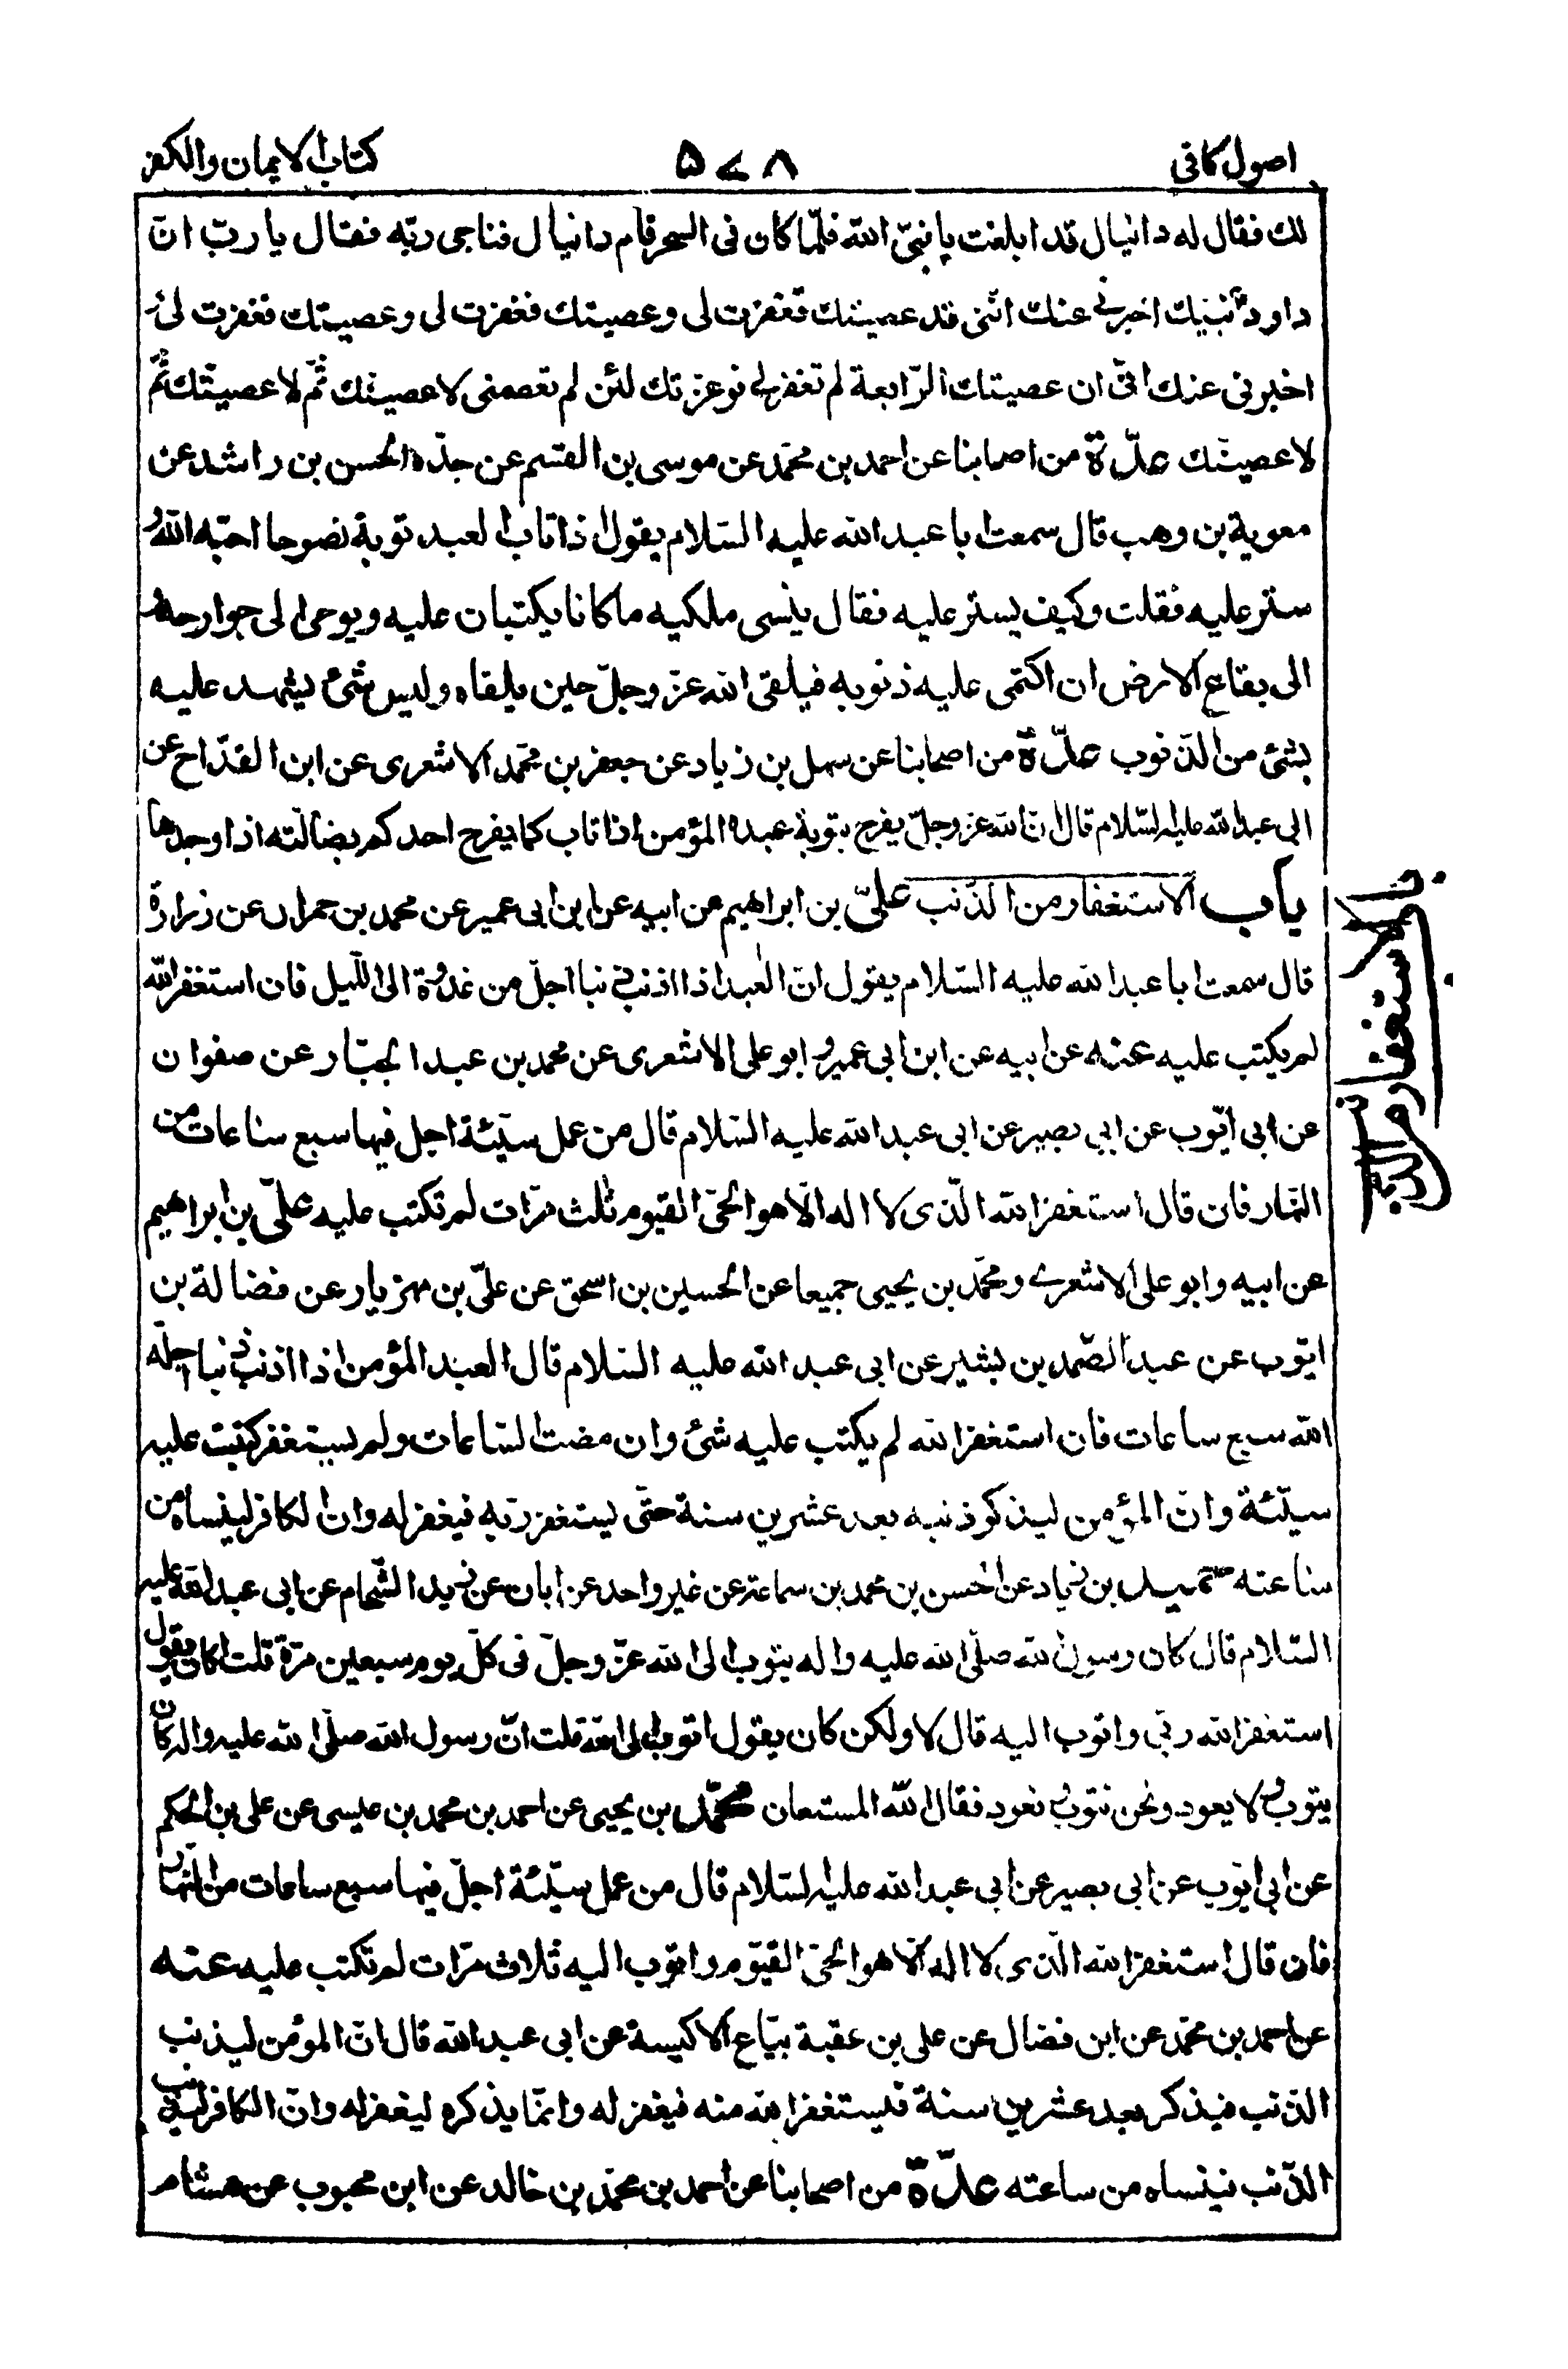 اصول كافى
۵۷۸
كتاب الايمان والكفر
لك فقال له دانيال قد ابلغت يا نبىّ الله فلمّا كان فى السحر قام دانيال فناجى ربّه فقال يا ربّ انّ
داود نبيك اخبرنى عنك انّنى قد عصيتك فغفرت لى وعصيتك فغفرت لى وعصيتك فغفرت لى و
اخبرنى عنك انّى ان عصيتك الرّابعة لم تغفر لى فوعزّتك لئن لم تعصمنى لاعصينّك ثمّ لاعصينّك ثمّ
لاعصينّك عدّة من اصحابنا عن احمد بن محمّد عن موسى بن القسم عن جدّه الحسن بن راشد عن
معوية بن وهب قال سمعت ابا عبد الله عليه السّلام يقول اذا تاب العبد توبة نصوحا احبّه الله و
ستر عليه فقلت وكيف يستر عليه فقال ينسى ملكيه ما كانا يكتبان عليه ويوحى الى جوارحه و
الى بقاع الارض ان اكتمى عليه ذنوبه فيلقى الله عزّ وجلّ حين يلقاه وليس شئ يشهد عليه
بشئ من الذّنوب عدّة من اصحابنا عن سهل بن زياد عن جعفر بن محمّد الاشعرى عن ابن القدّاح عن
ابى عبد الله عليه السّلام قال انّ الله عزّ وجلّ يفرح بتوبة عبده المؤمن اذا تاب كما يفرح احدكم بضالّته اذا وجدها
باب الاستغفار من الذّنب علىّ بن ابراهيم عن ابيه عن ابن ابى عمير عن محمد بن حمران عن زرارة
قال سمعت ابا عبد الله عليه السّلام يقول انّ العبد اذا اذنب ذنبا اجلّ من غدوة الى اللّيل فان استغفر الله
لم يكتب عليه عنه عن ابيه عن ابن ابى عمير و ابو على الاشعرى عن محمد بن عبد الجبّار عن صفوان
عن ابى ايّوب عن ابى بصير عن ابى عبد الله عليه السّلام قال من عمل سيّئة اجل فيها سبع ساعات من
النّهار فان قال استغفر الله الّذى لا اله الّا هو الحىّ القيوم ثلث مرّات لم تكتب عليه علىّ بن ابراهيم
عن ابيه وابو على الاشعرى ومحمّد بن يحيى جميعا عن الحسين بن اسحق عن علىّ بن مهزيار عن فضالة بن
ايّوب عن عبد الصّمد بن بشير عن ابى عبد الله عليه السّلام قال العبد المؤمن اذا اذنب ذنبا اجلّه
الله سبع ساعات فان استغفر الله لم يكتب عليه شئ وان مضت السّاعات ولم يستغفر كتبت عليه
سيّئة وانّ المؤمن ليذكر ذنبه بعد عشرين سنة حتّى يستغفر ربّه فيغفر له وانّ الكافر لينساه من
ساعته حميد بن زياد عن الحسن بن محمد بن سماعة عن غير واحد عن ابان عن زيد الشّحام عن ابى عبد الله عليه
السّلام قال كان رسول الله صلّى الله عليه واله يتوب الى الله عزّ وجلّ فى كلّ يوم سبعين مرّة قلت اكان يقول
استغفر الله ربّى واتوب اليه قال لا ولكن كان يقول اتوب الى الله قلت انّ رسول الله صلّى الله عليه واله كان
يتوب و لا يعود ونحن نتوب و نعود فقال الله المستعان محمّد بن يحيى عن احمد بن محمد بن عيسى عن على بن الحكم
عن ابى ايّوب عن ابى بصير عن ابى عبد الله عليه السّلام قال من عمل سيّئة اجلّ فيها سبع ساعات من النّهار
فان قال استغفر الله الّذى لا اله الّا هو الحىّ القيّوم واتوب اليه ثلاث مرّات لم تكتب عليه عنه
عن احمد بن محمّد عن ابن فضال عن على بن عقبة بيّاع الاكيسة عن ابى عبد الله قال انّ المؤمن ليذنب
الذّنب فيذكر بعد عشرين سنة فيستغفر الله منه فيغفر له وانّما يذكره ليغفر له وانّ الكافر ليذنب
الذّنب فينساه من ساعته عدّة من اصحابنا عن احمد بن محمّد بن خالد عن ابن محبوب عن هشام
الاستغفار من الذنب